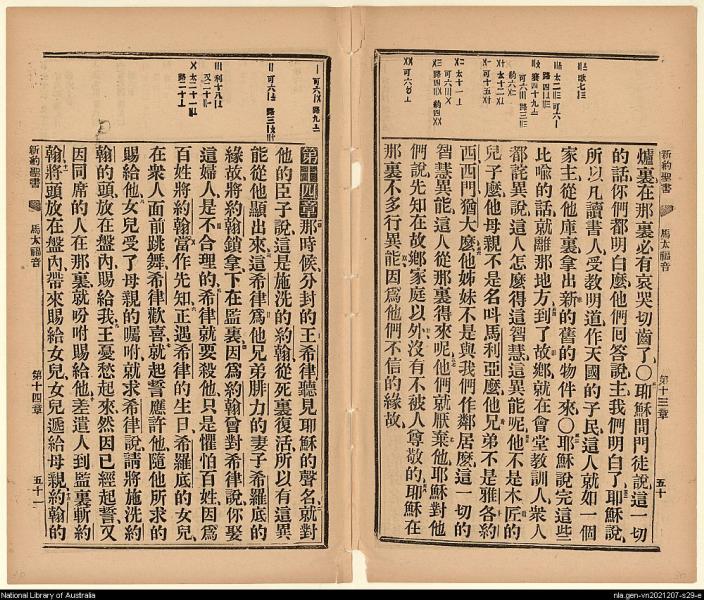 新約聖書
馬太福音
第十三章
五十
爐裏在那裏必有哀哭切齒了〇耶穌問門徒說這一切
的話你們都明白麼他們囘答說主我們明白了耶穌說
所以凡讀書人受教明道作天國的子民這人就如一個
家主從他庫裏拿出新的舊的物件來〇耶穌說完這些
比喩的話就離那地方到了故鄉就在會堂教訓人衆人
都詫異說這人怎麼得這智慧這異能呢他不是木匠的
兒子麼他母親不是名呌馬利亞麼他兄弟不是雅各約
西西門猶大麼他姊妹不是與我們作鄰居麼這一切的
智慧異能這人從那裏得來呢他們就厭棄他耶穌對他
們說先知在故鄉家庭以外沒有不被人尊敬的耶穌在
那裏不多行異能因爲他們不信的緣故
第十四章那時候分封的王希律聽見耶穌的聲名就對
他的臣子說這是施洗的約翰從死裏復活所以有這異
能從他顯出來這希律爲他兄弟腓力的妻子希羅底的
緣故將約翰鎖拿下在監裏因爲約翰曾對希律說你娶
這婦人是不合理的希律就要殺他只是懼怕百姓因爲
百姓將約翰當作先知正遇希律的生日希羅底的女兒
在衆人面前跳舞希律歡喜就起誓應許他隨他所求的
賜給他女兒受了母親的囑咐就求希律說請將施洗約
翰的頭放在盤內賜給我王憂愁起來然因已經起誓又
因同席的人在那裏就吩咐賜給他差遣人到監裏斬約
翰將頭放在盤內帶來賜給女兒女兒遞給母親約翰的
新約聖書
馬太福音
第十四章
五十一
National Library of Australia
nla.gen-vn2021207-s29-e